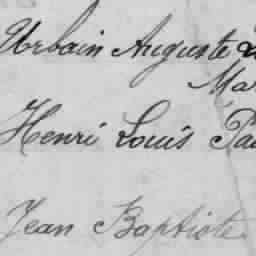 Urbain Auguste
Mar
Henri Louis Pau
Jean Baptiste